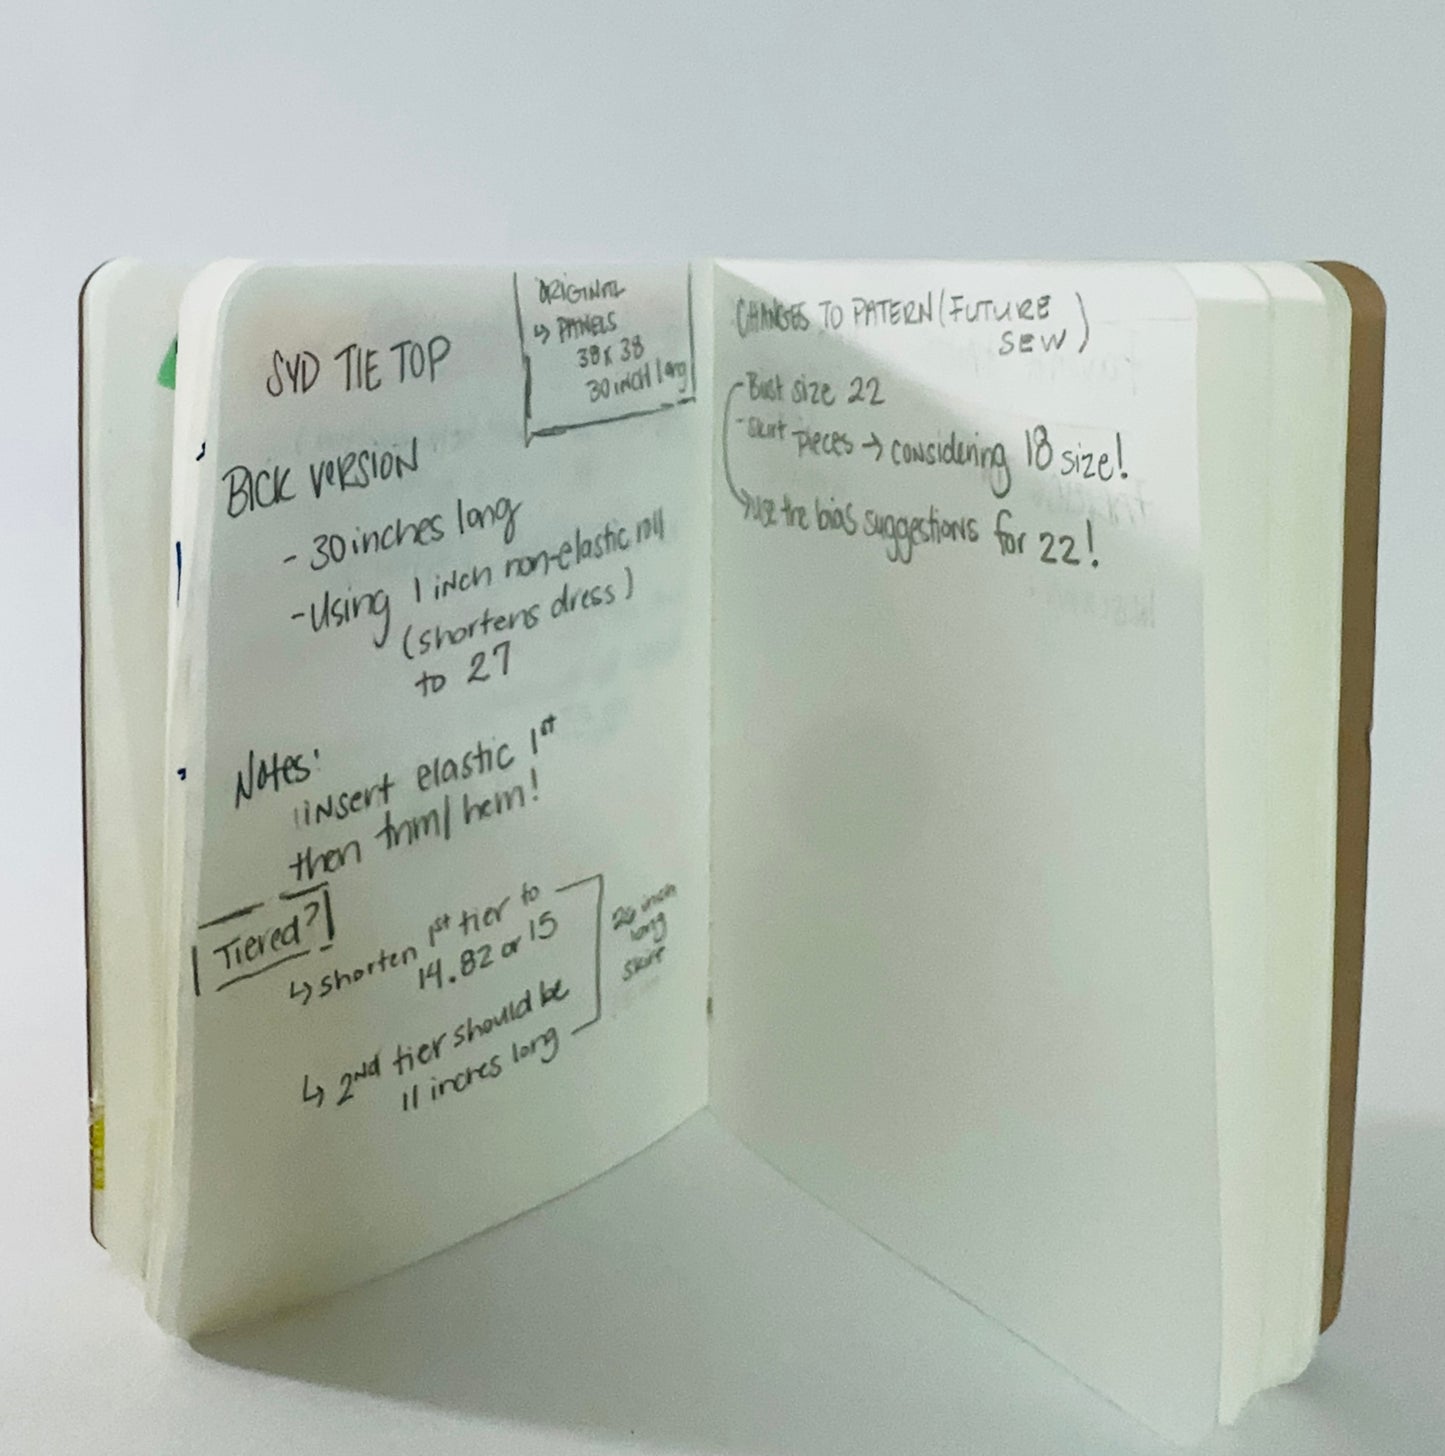 SYD TIE TOP
ORIGINAL
↳ PANELS
38 x 38
30 inch long
BICK VERSION
- 30 inches long
- Using 1 inch non-elastic roll
(shortens dress)
to 27
Notes:
insert elastic 1st
then trim/hem!
Tiered?
↳ shorten 1st tier to
14.82 or 15
↳ 2nd tier should be
11 inches long
26 inch
long
skirt
CHANGES TO PATERN (FUTURE
SEW)
- Bust size 22
- skirt pieces → considering 18 size!
↳ use the bias suggestions for 22!